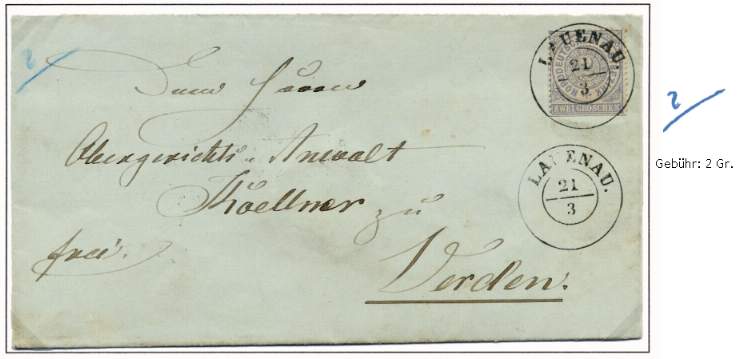 2
LAUENAU.
21
3
NORDDEUTSCHER POSTBEZIRK
ZWEI GROSCHEN
Dem Herrn
Obergerichts-Anwalt
Koellner zu
frei.
Verden.
LAUENAU.
21
3
2
Gebühr: 2 Gr.